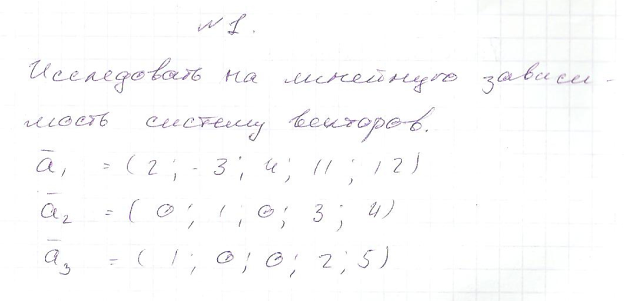 № 1.
Исследовать на линейную зависи-
мость систему векторов.
a̅₁ = (2; -3; 4; 11; 12)
a̅₂ = (0; 1; 0; 3; 4)
a̅₃ = (1; 0; 0; 2; 5)